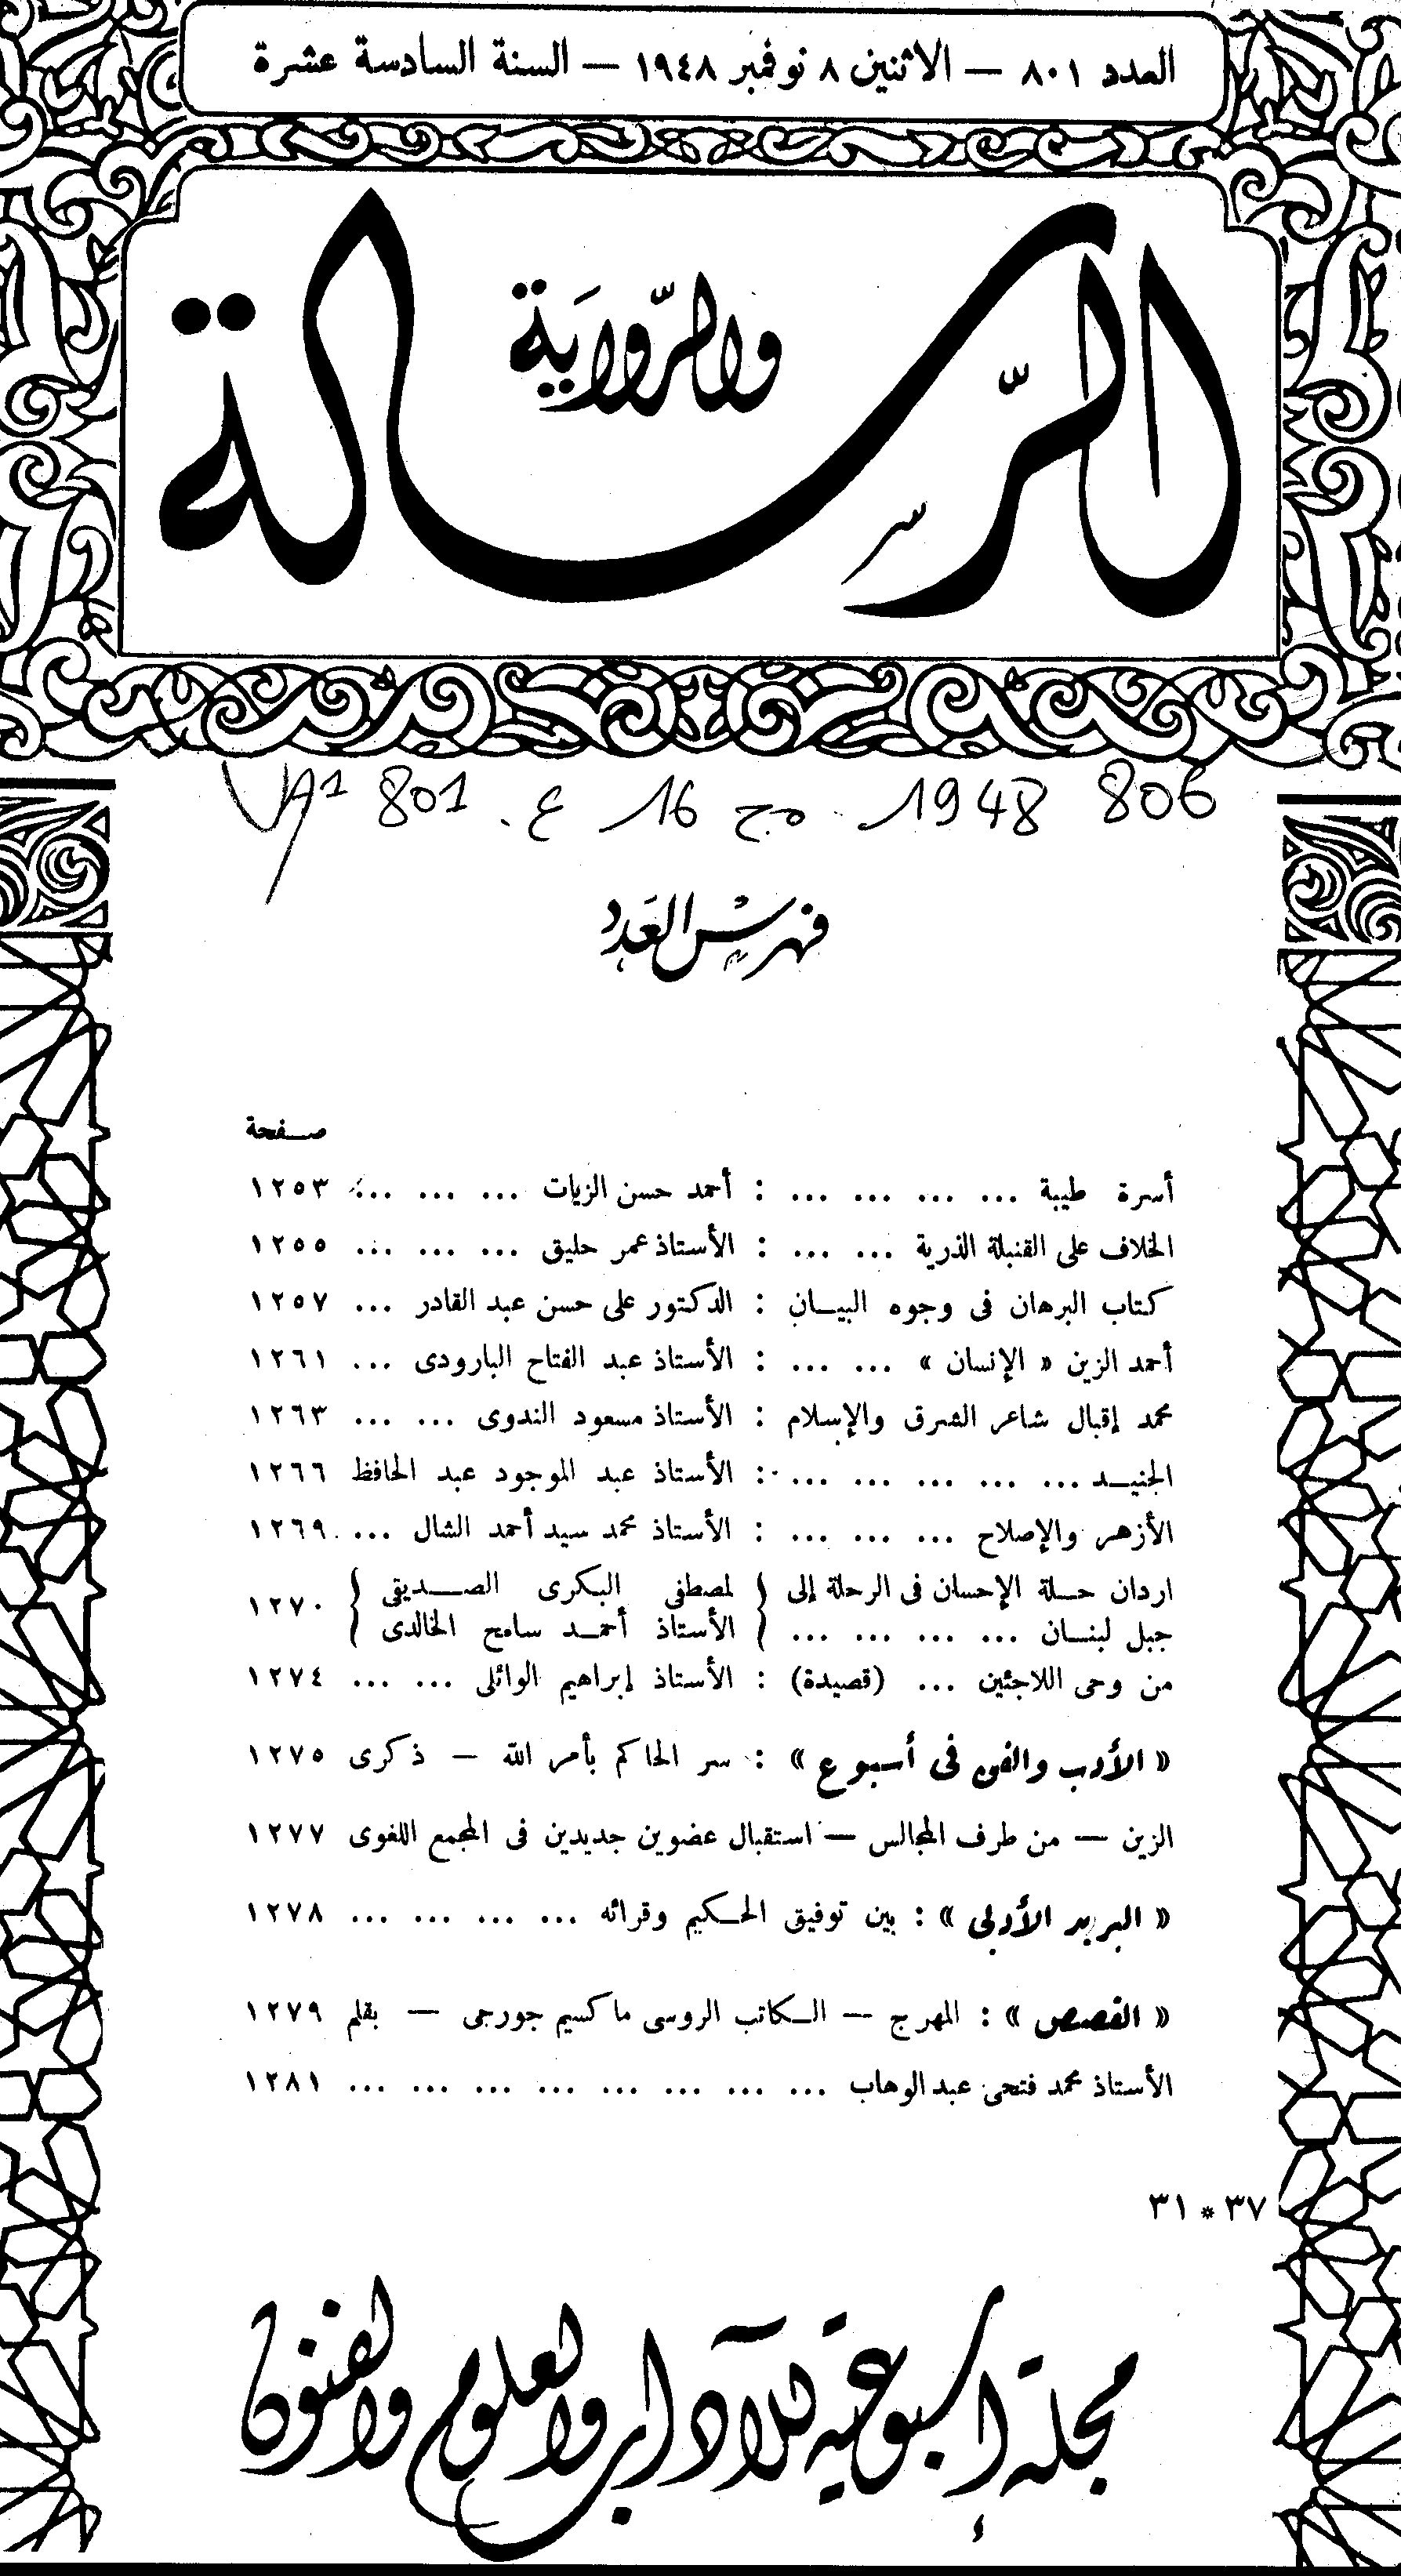 العدد ٨٠١ — الاثنين ٨ نوفمبر ١٩٤٨ — السنة السادسة عشرة
الرسالة
والرواية
806 1948 مج 16 ع. 801
فهرس العدد
صفحة
أسرة طيبة ... ... ... ... : أحمد حسن الزيات ... ... ... ١٢٥٣
الخلاف على القنبلة الذرية ... ... : الأستاذ عمر حليق ... ... ... ١٢٥٥
كتاب البرهان فى وجوه البيان : الدكتور على حسن عبد القادر ... ١٢٥٧
أحمد الزين « الإنسان » ... ... : الأستاذ عبد الفتاح البارودى ... ١٢٦١
محمد إقبال شاعر الشرق والإسلام : الأستاذ مسعود الندوى ... ... ١٢٦٣
الجنيد ... ... ... ... ... : الأستاذ عبد الموجود عبد الحافظ ١٢٦٦
الأزهر والإصلاح ... ... ... : الأستاذ محمد سيد أحمد الشال ... ١٢٦٩
اردان حلة الإحسان فى الرحلة إلى { لمصطفى البكرى الصديقى {
جبل لبنان ... ... ... ... { الأستاذ أحمد سامح الخالدى { ١٢٧٠
من وحى اللاجئين ... (قصيدة) : الأستاذ إبراهيم الوائلى ... ... ١٢٧٤
« الأدب والفن فى أسبوع » : سر الحاكم بأمر الله — ذكرى ١٢٧٥
الزين — من طرف المجالس — استقبال عضوين جديدين فى المجمع اللغوى ١٢٧٧
« البريد الأدبى » : بين توفيق الحكيم وقرائه ... ... ... ... ١٢٧٨
« القصص » : المهرج — الكاتب الروسى ماكسيم جورجى — بقلم ١٢٧٩
الأستاذ محمد فتحى عبد الوهاب ... ... ... ... ... ... ... ... ١٢٨١
٣٧ * ٣١
مجلة أسبوعية للآداب والعلوم والفنون